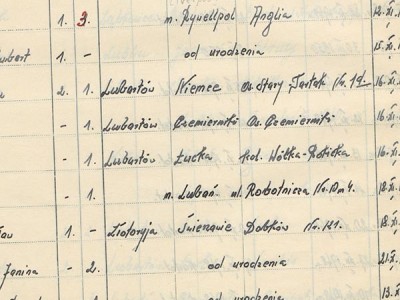 1. 3. m. Rywellpol Anglia 12.XI.
1. - od urodzenia 15.XI.
2. 1. Lubartów Niemce os. Stary-Tartak 16.XI.
- 1. Lubartów Czemierniki Os. Czemierniki 16.XI.
- 1. Lubartów Łucka kol. Wólka-Rokicka 16.XI.
- 1. m. Lubań ul. Robotnicza Nr. 10 m 4. 18.XI.
1. - Złotoryja Świerzawa Dobków Nr. 121. 18.XI.
Janina - 2. od urodzenia 21.XI.
1. od urodzenia 13.